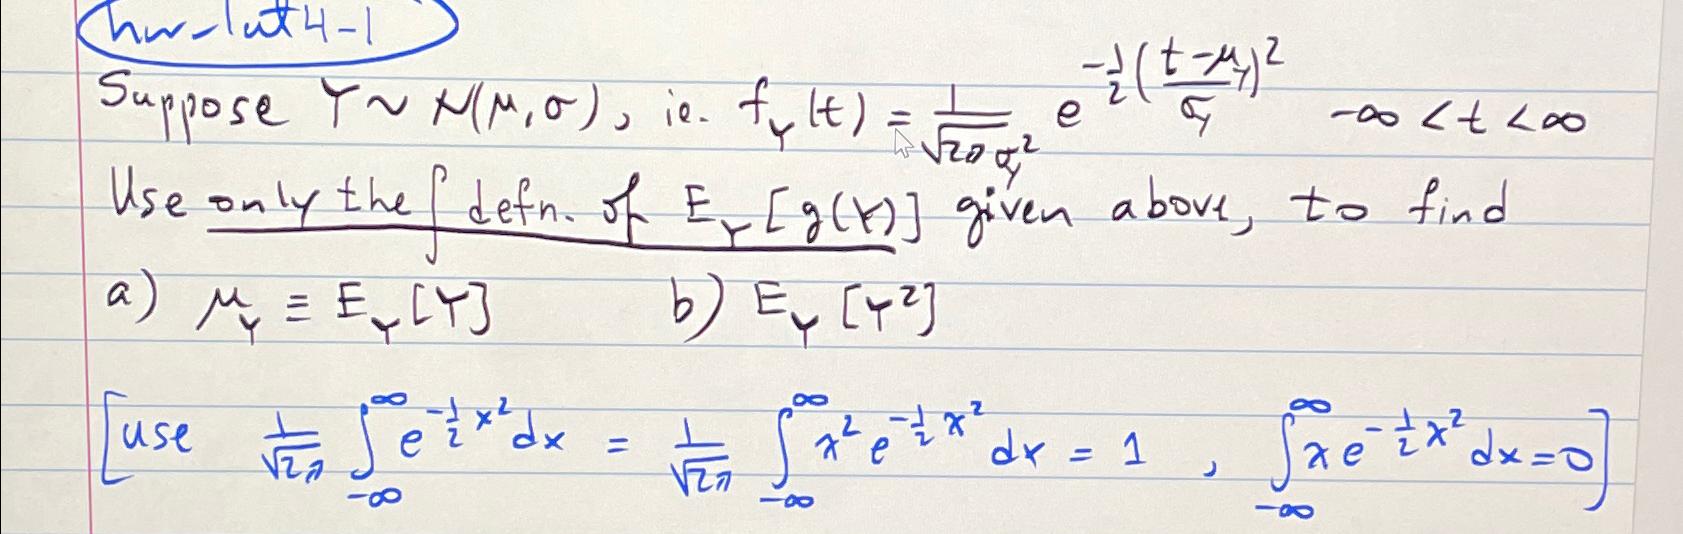 hw-lect4-1
Suppose Y ~ N(μ, σ), ie. f_Y(t) = 1/√2π σ_Y² e^{-1/2((t-μ_Y)/σ_Y)²} -∞ < t < ∞
Use only the ∫ defn. of E_Y[g(Y)] given above, to find
a) μ_Y ≡ E_Y[Y] b) E_Y[Y²]
[use 1/√2π ∫_{-∞}^{∞} e^{-1/2 x²} dx = 1/√2π ∫_{-∞}^{∞} x² e^{-1/2 x²} dx = 1 , ∫_{-∞}^{∞} x e^{-1/2 x²} dx = 0]